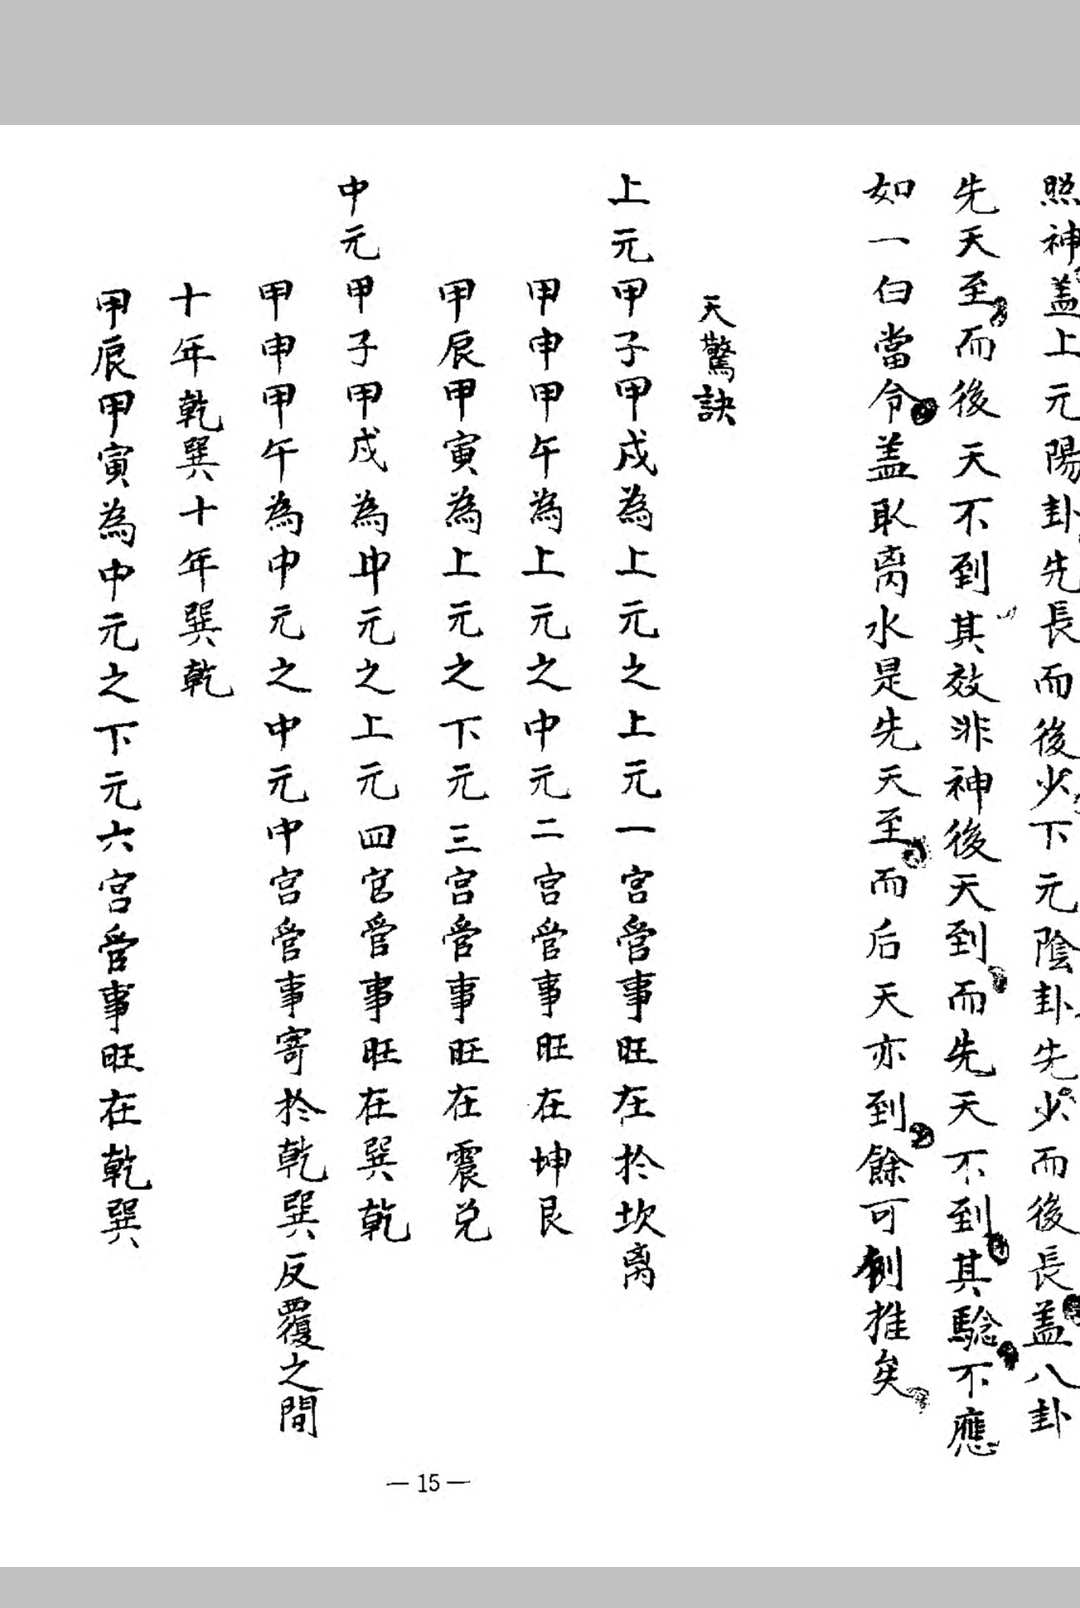 照神盖上元陽卦先長而後少下元陰卦先少而後長盖八卦
先天至而後天不到其效非神後天到而先天不到其驗不應
如一白當令盖取离水是先天至而后天亦到餘可例推矣
天驚訣
上元甲子甲戌為上元之上元一宮管事旺在於坎离
甲申甲午為上元之中元二宮管事旺在坤艮
甲辰甲寅為上元之下元三宮管事旺在震兌
中元甲子甲戌為中元之上元四宮管事旺在巽乾
甲申甲午為中元之中元中宮管事寄於乾巽反覆之間
十年乾巽十年巽乾
甲辰甲寅為中元之下元六宮管事旺在乾巽
— 15 —